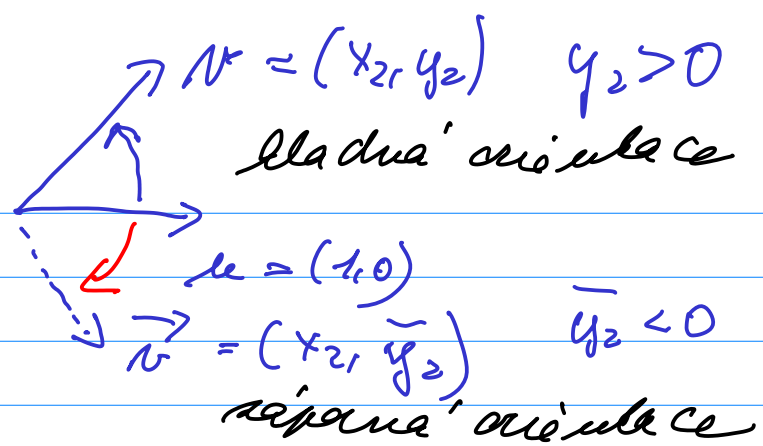 v = (x₂, y₂)   y₂ > 0
kladná orientace
u = (1, 0)
v⃗ = (x₂, y̅₂)   y̅₂ < 0
záporná orientace